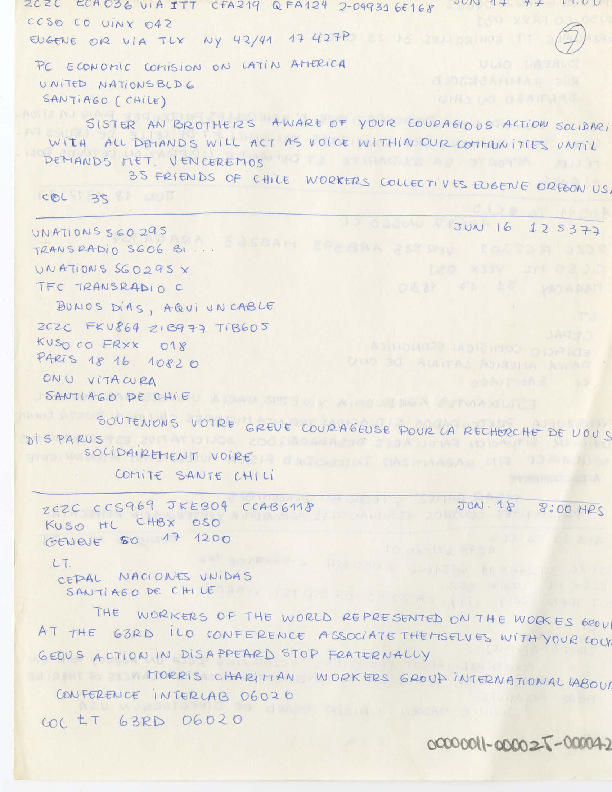 ZCZC ECA036 VIA ITT CFA219 QFA124 2-04931 6E168 JUN 17 77
CCSO CO UINX 042
EUGENE OR VIA TLX NY 42/41 17 427P
7
PC ECONOMIC COMISION ON LATIN AMERICA
UNITED NATIONSBLDG
SANTIAGO (CHILE)
SISTER AN BROTHERS AWARE OF YOUR COURAGIOUS ACTION SOLIDARI
WITH ALL DEMANDS WILL ACT AS VOICE WITHIN OUR COMMUNITIES UNTIL
DEMANDS MET. VENCEREMOS
35 FRIENDS OF CHILE WORKERS COLLECTIVES EUGENE OREGON USA
COL 35
UNATIONS SGO295 JUN 16 125377
TRANSRADIO SGO6 Bi ...
UNATIONS SGO295 X
TFC TRANSRADIO C
BUNOS DÍAS, AQUI UN CABLE
ZCZC FKU864 ZIB977 TIB605
KUSO CO FRXX 018
PARIS 18 16 10820
ONU VITACURA
SANTIAGO DE CHIE
SOUTENONS VOTRE GREVE COURAGEUSE POUR LA RECHERCHE DE VOUS
DISPARUS
SOLIDAIREMENT VOIRE
COMITE SANTE CHILI
ZCZC CCS969 JKE304 CCAB6118 JUN. 18 8:00 HRS
KUSO HL CHBX 050
GENEVE 50 17 1200
LT.
CEPAL NACIONES UNIDAS
SANTIAGO DE CHILE
THE WORKERS OF THE WORLD REPRESENTED ON THE WORKES GROU
AT THE 63RD ILO CONFERENCE ASSOCIATE THEMSELVES WITH YOUR COUR
GEOUS ACTION IN DISAPPEARD STOP FRATERNALLY
MORRIS CHARIMAN WORKERS GROUP INTERNATIONAL LABOUR
CONFERENCE INTERLAB 06020
COL LT 63RD 06020
00000011-000025-000042